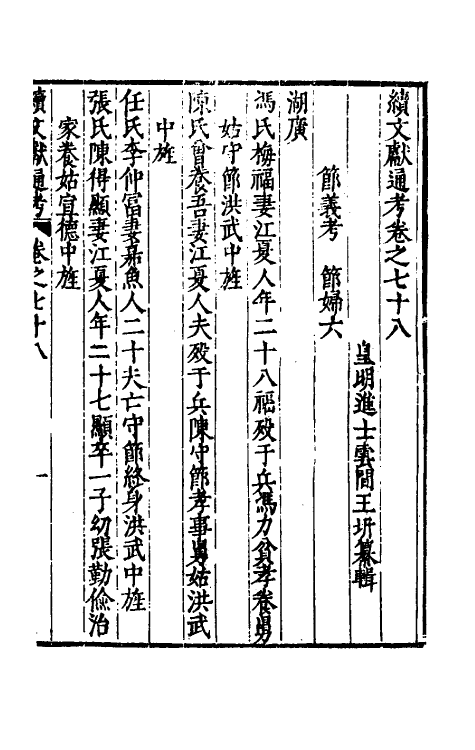 續文獻通考卷之七十八
皇明進士雲間王圻纂輯
節義考　節婦六
湖廣
馮氏梅福妻江夏人年二十八福歿于兵馮力貧孝養舅
姑守節洪武中旌
陳氏曾養吾妻江夏人夫歿于兵陳守節孝事舅姑洪武
中旌
任氏李仲冨妻嘉魚人二十夫亡守節終身洪武中旌
張氏陳得顯妻江夏人年二十七顯卒一子幼張勤儉治
家養姑宣德中旌
續文獻通考　卷之七十八　一